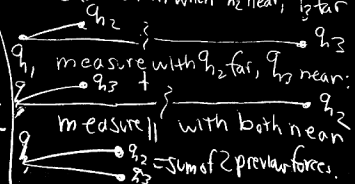 when q2 near, q3 far
q2
q3
q1, measure with q2 far, q3 near:
q3
q1
q2
measure || with both near
q1
q2 = sum of 2 previous forces.
q3